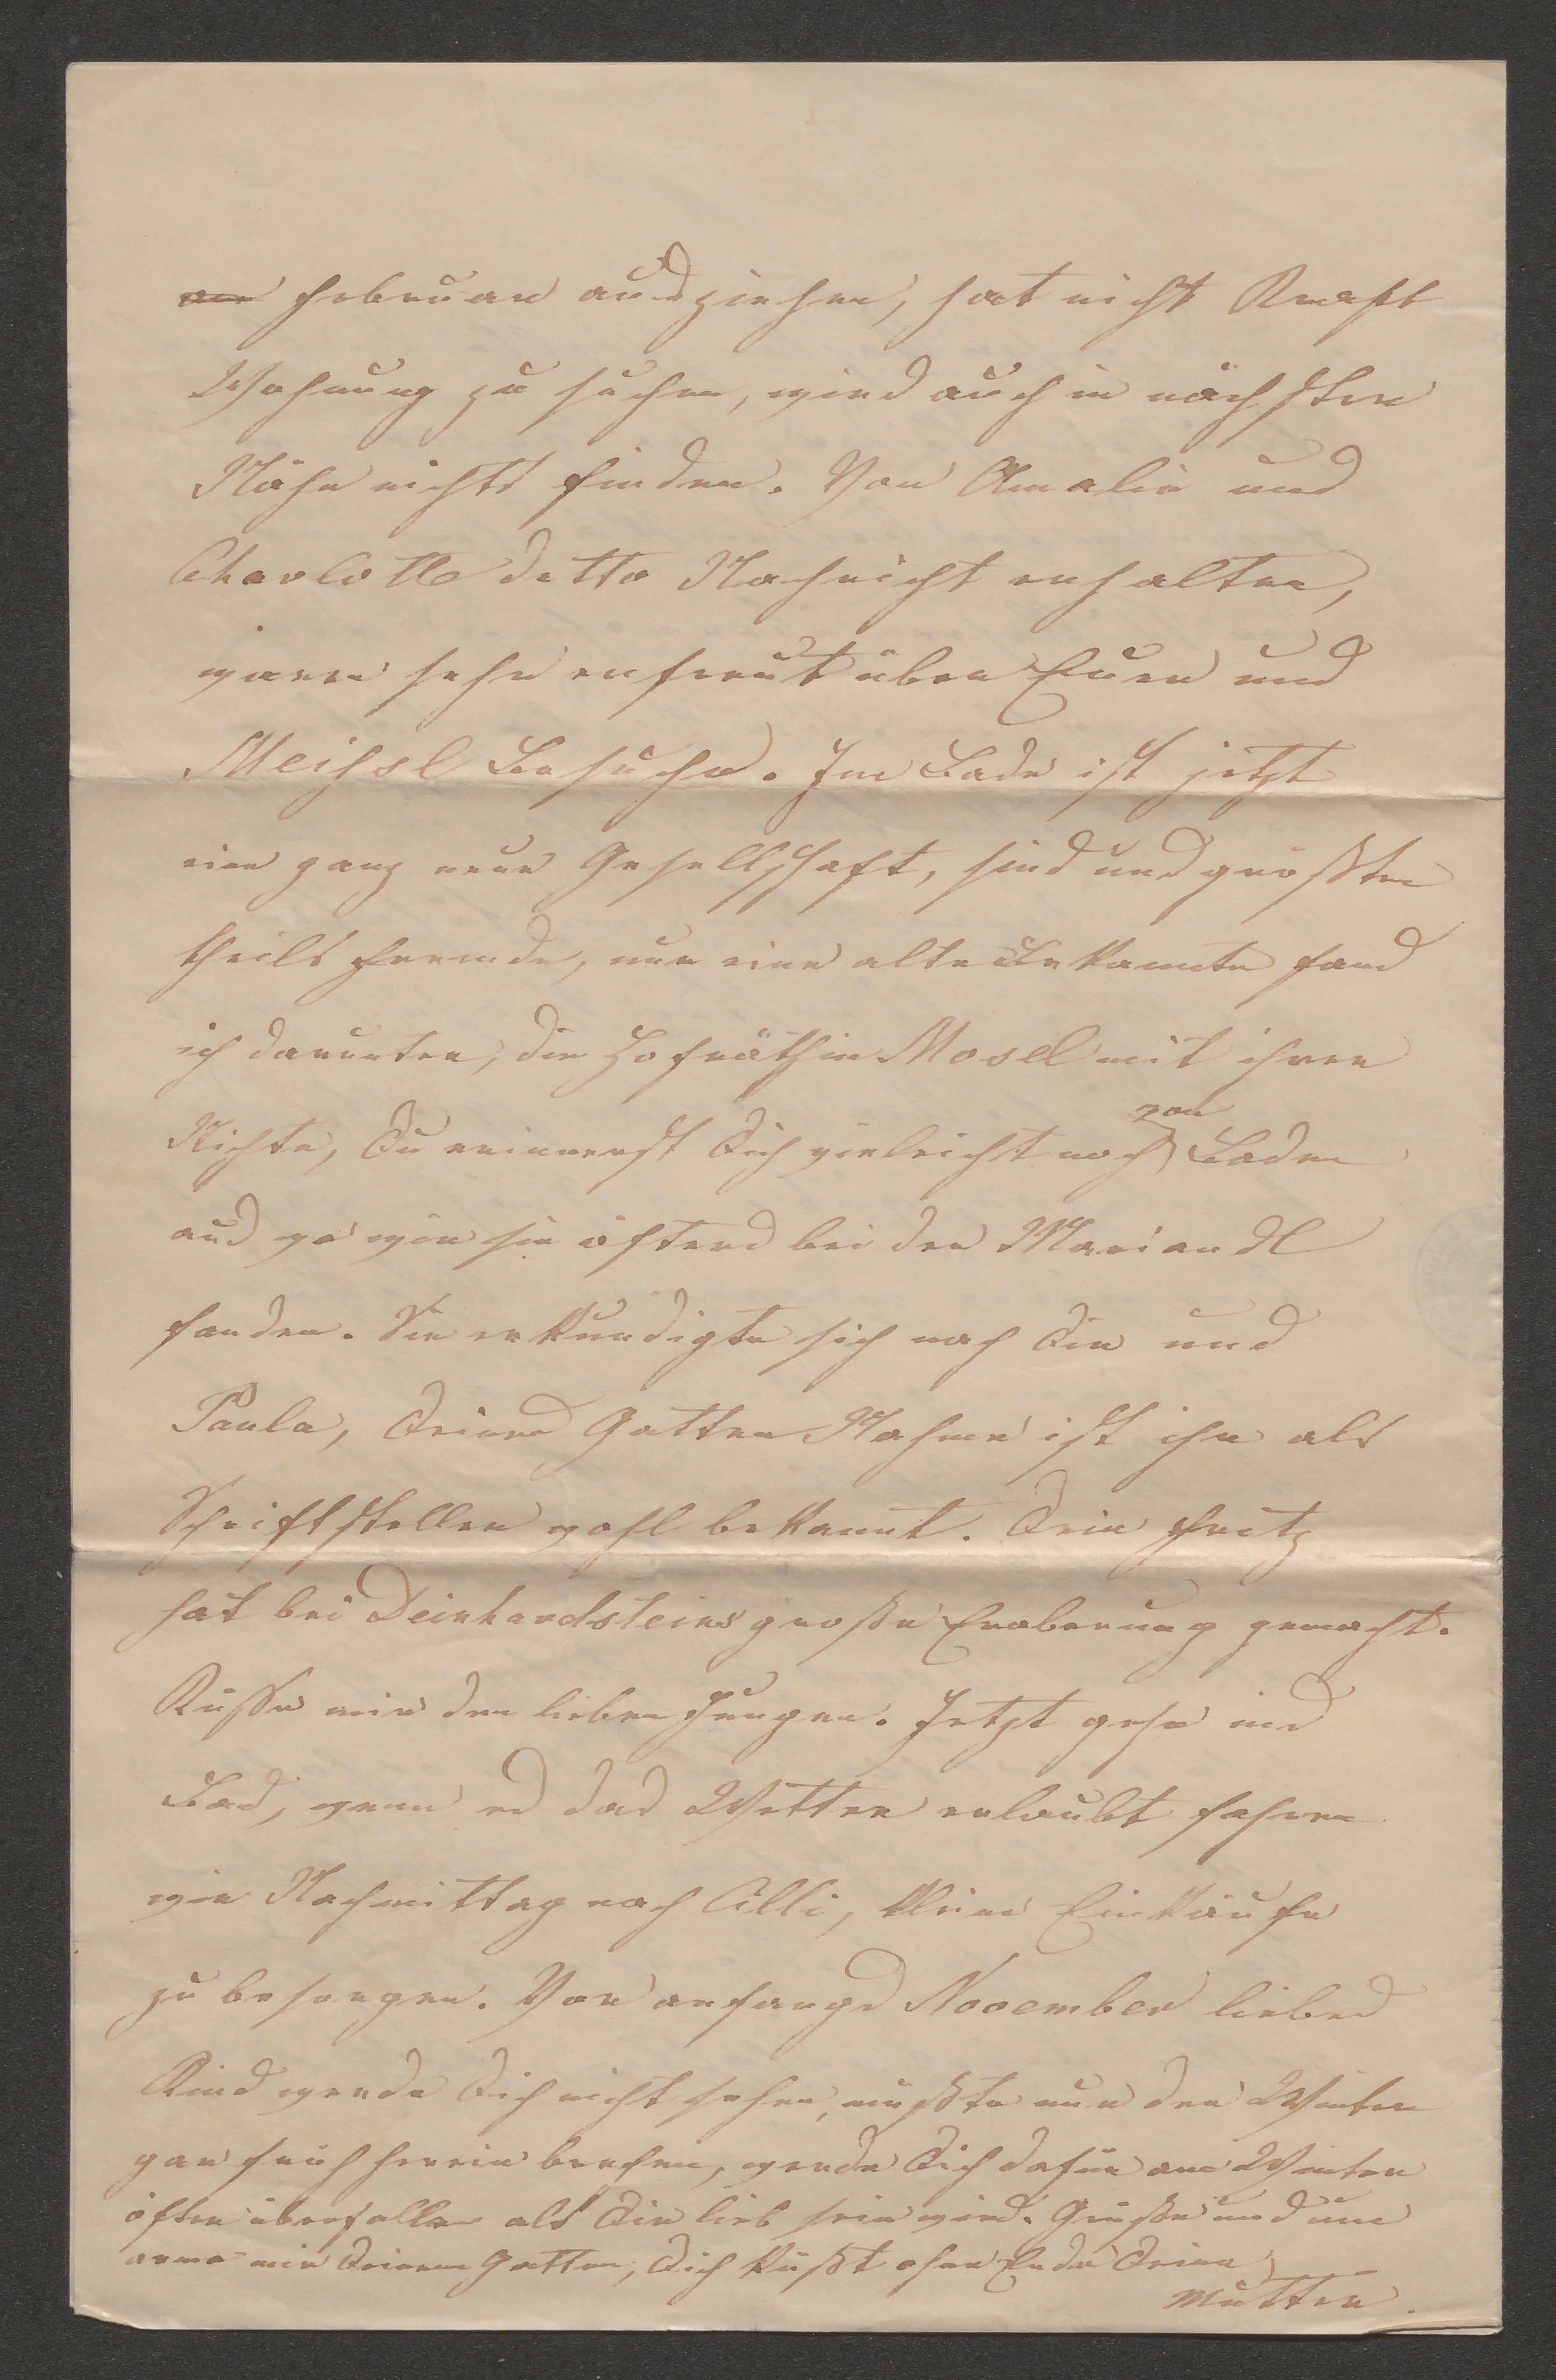 Februar ausziehen, hat nicht Kraft
Wohnung zu suchen, wird auch in nächster
Nähe nichts finden. Von Amalie und
Charlotte detto Nachricht erhalten,
waren sehr erfreut über Euren und
Meissl Besuche. Im Bade ist jetzt
eine ganz neue Gesellschaft, sind uns größten
theils Fremde, nur eine alte Bekannte fand
ich darunter, die Hofräthin Mosel mit ihrer
Nichte, Du erinnerst Dich vieleicht noch von Baden
aus wo wir sie öfters bei der Mariandl
fanden. Sie erkundigte sich nach Dir und
Paula, Deines Gatten Nahme ist ihr als
Schriftsteller wohl bekannt. Dein Fritz
hat bei Deinhardsteins große Eroberung gemacht.
Küsse mir den lieben Jungen. Jetzt gehe ins
Bad, wenn es das Wetter erlaubt fahren
wir Nachmittag nach Cilli, kleine Einkäufe
zu besorgen. Vor anfangs November liebes
Kind werde Dich nicht sehen, müßte nur der Winter
gar früh herein brechen, werde Dich dafür am Winter
öfter überfallen als Dir lieb sein wird. Grüße und um
arme mir Deinen Gatten, Dich küßt ohne Ende Deine
Mutter.